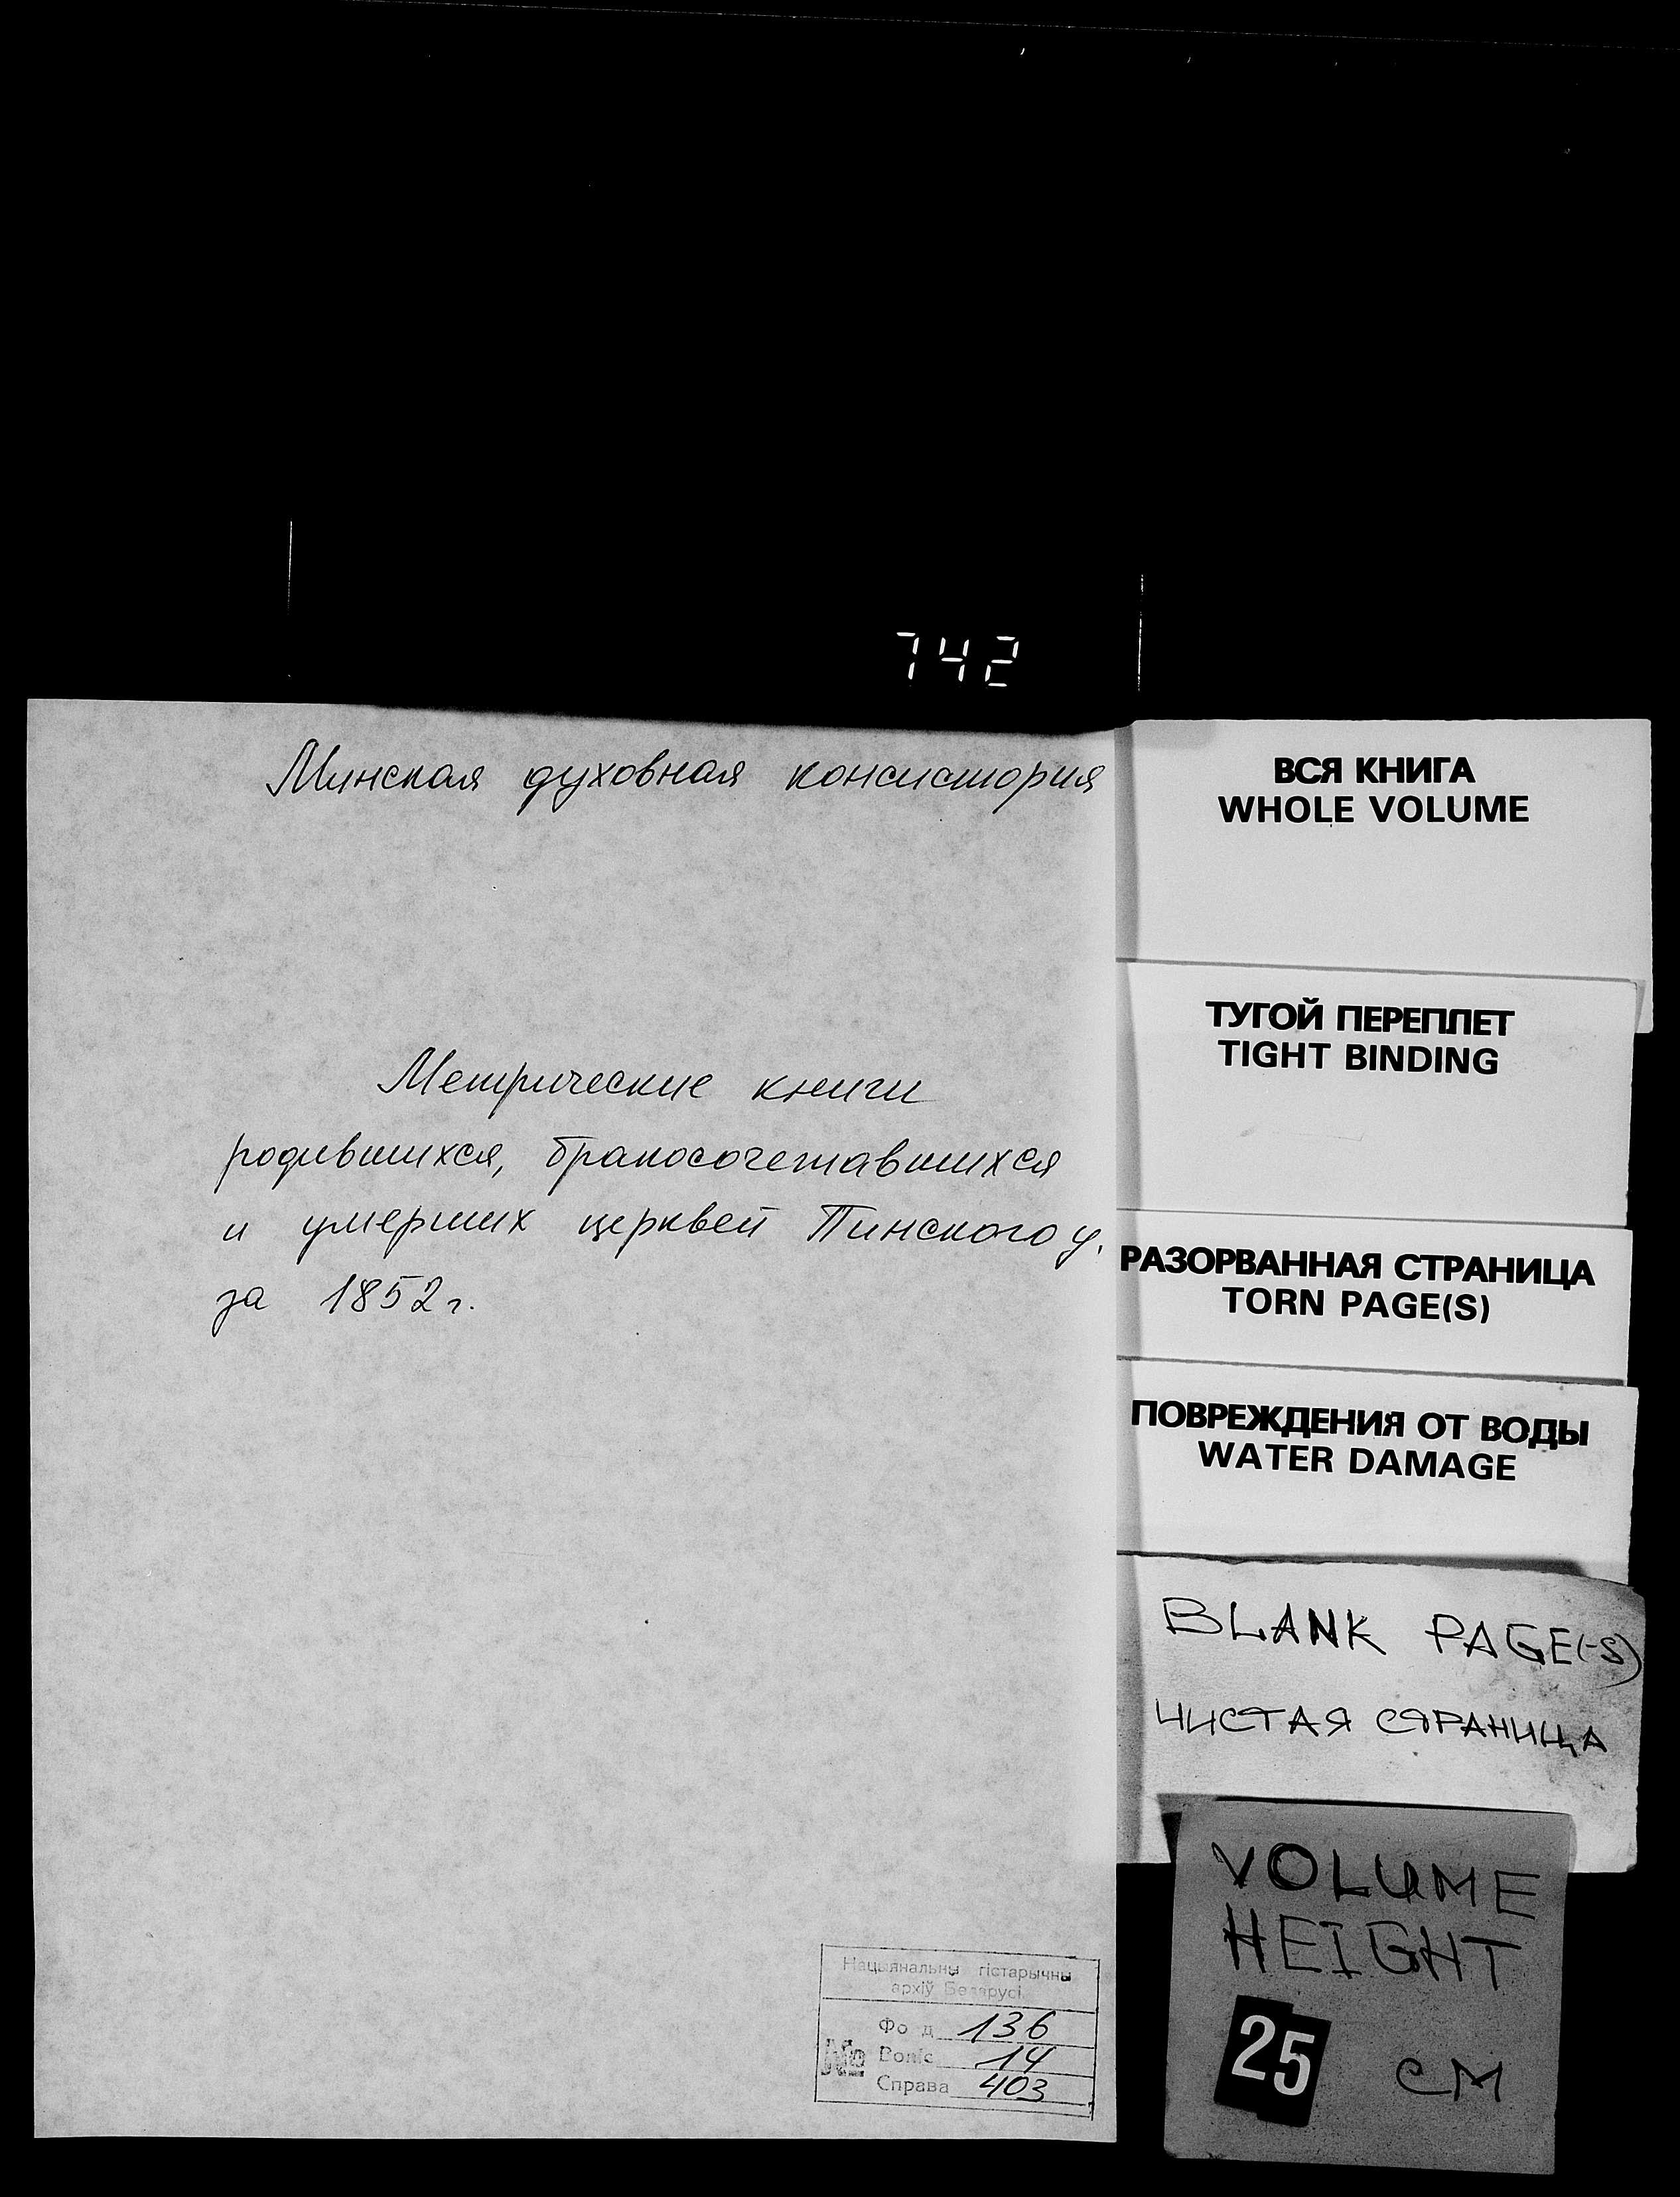 742
Минская духовная консистория
Метрические книги
родившихся, бракосочетавшихся
и умерших церквей Пинского у.
за 1852 г.
Нацыянальны гістарычны
архіў Беларусі
Фонд 136
№ Вопіс 14
Справа 403
ВСЯ КНИГА
WHOLE VOLUME
ТУГОЙ ПЕРЕПЛЕТ
TIGHT BINDING
РАЗОРВАННАЯ СТРАНИЦА
TORN PAGE(S)
ПОВРЕЖДЕНИЯ ОТ ВОДЫ
WATER DAMAGE
BLANK PAGE(-S)
ЧИСТАЯ СТРАНИЦА
VOLUME
HEIGHT
25 CM